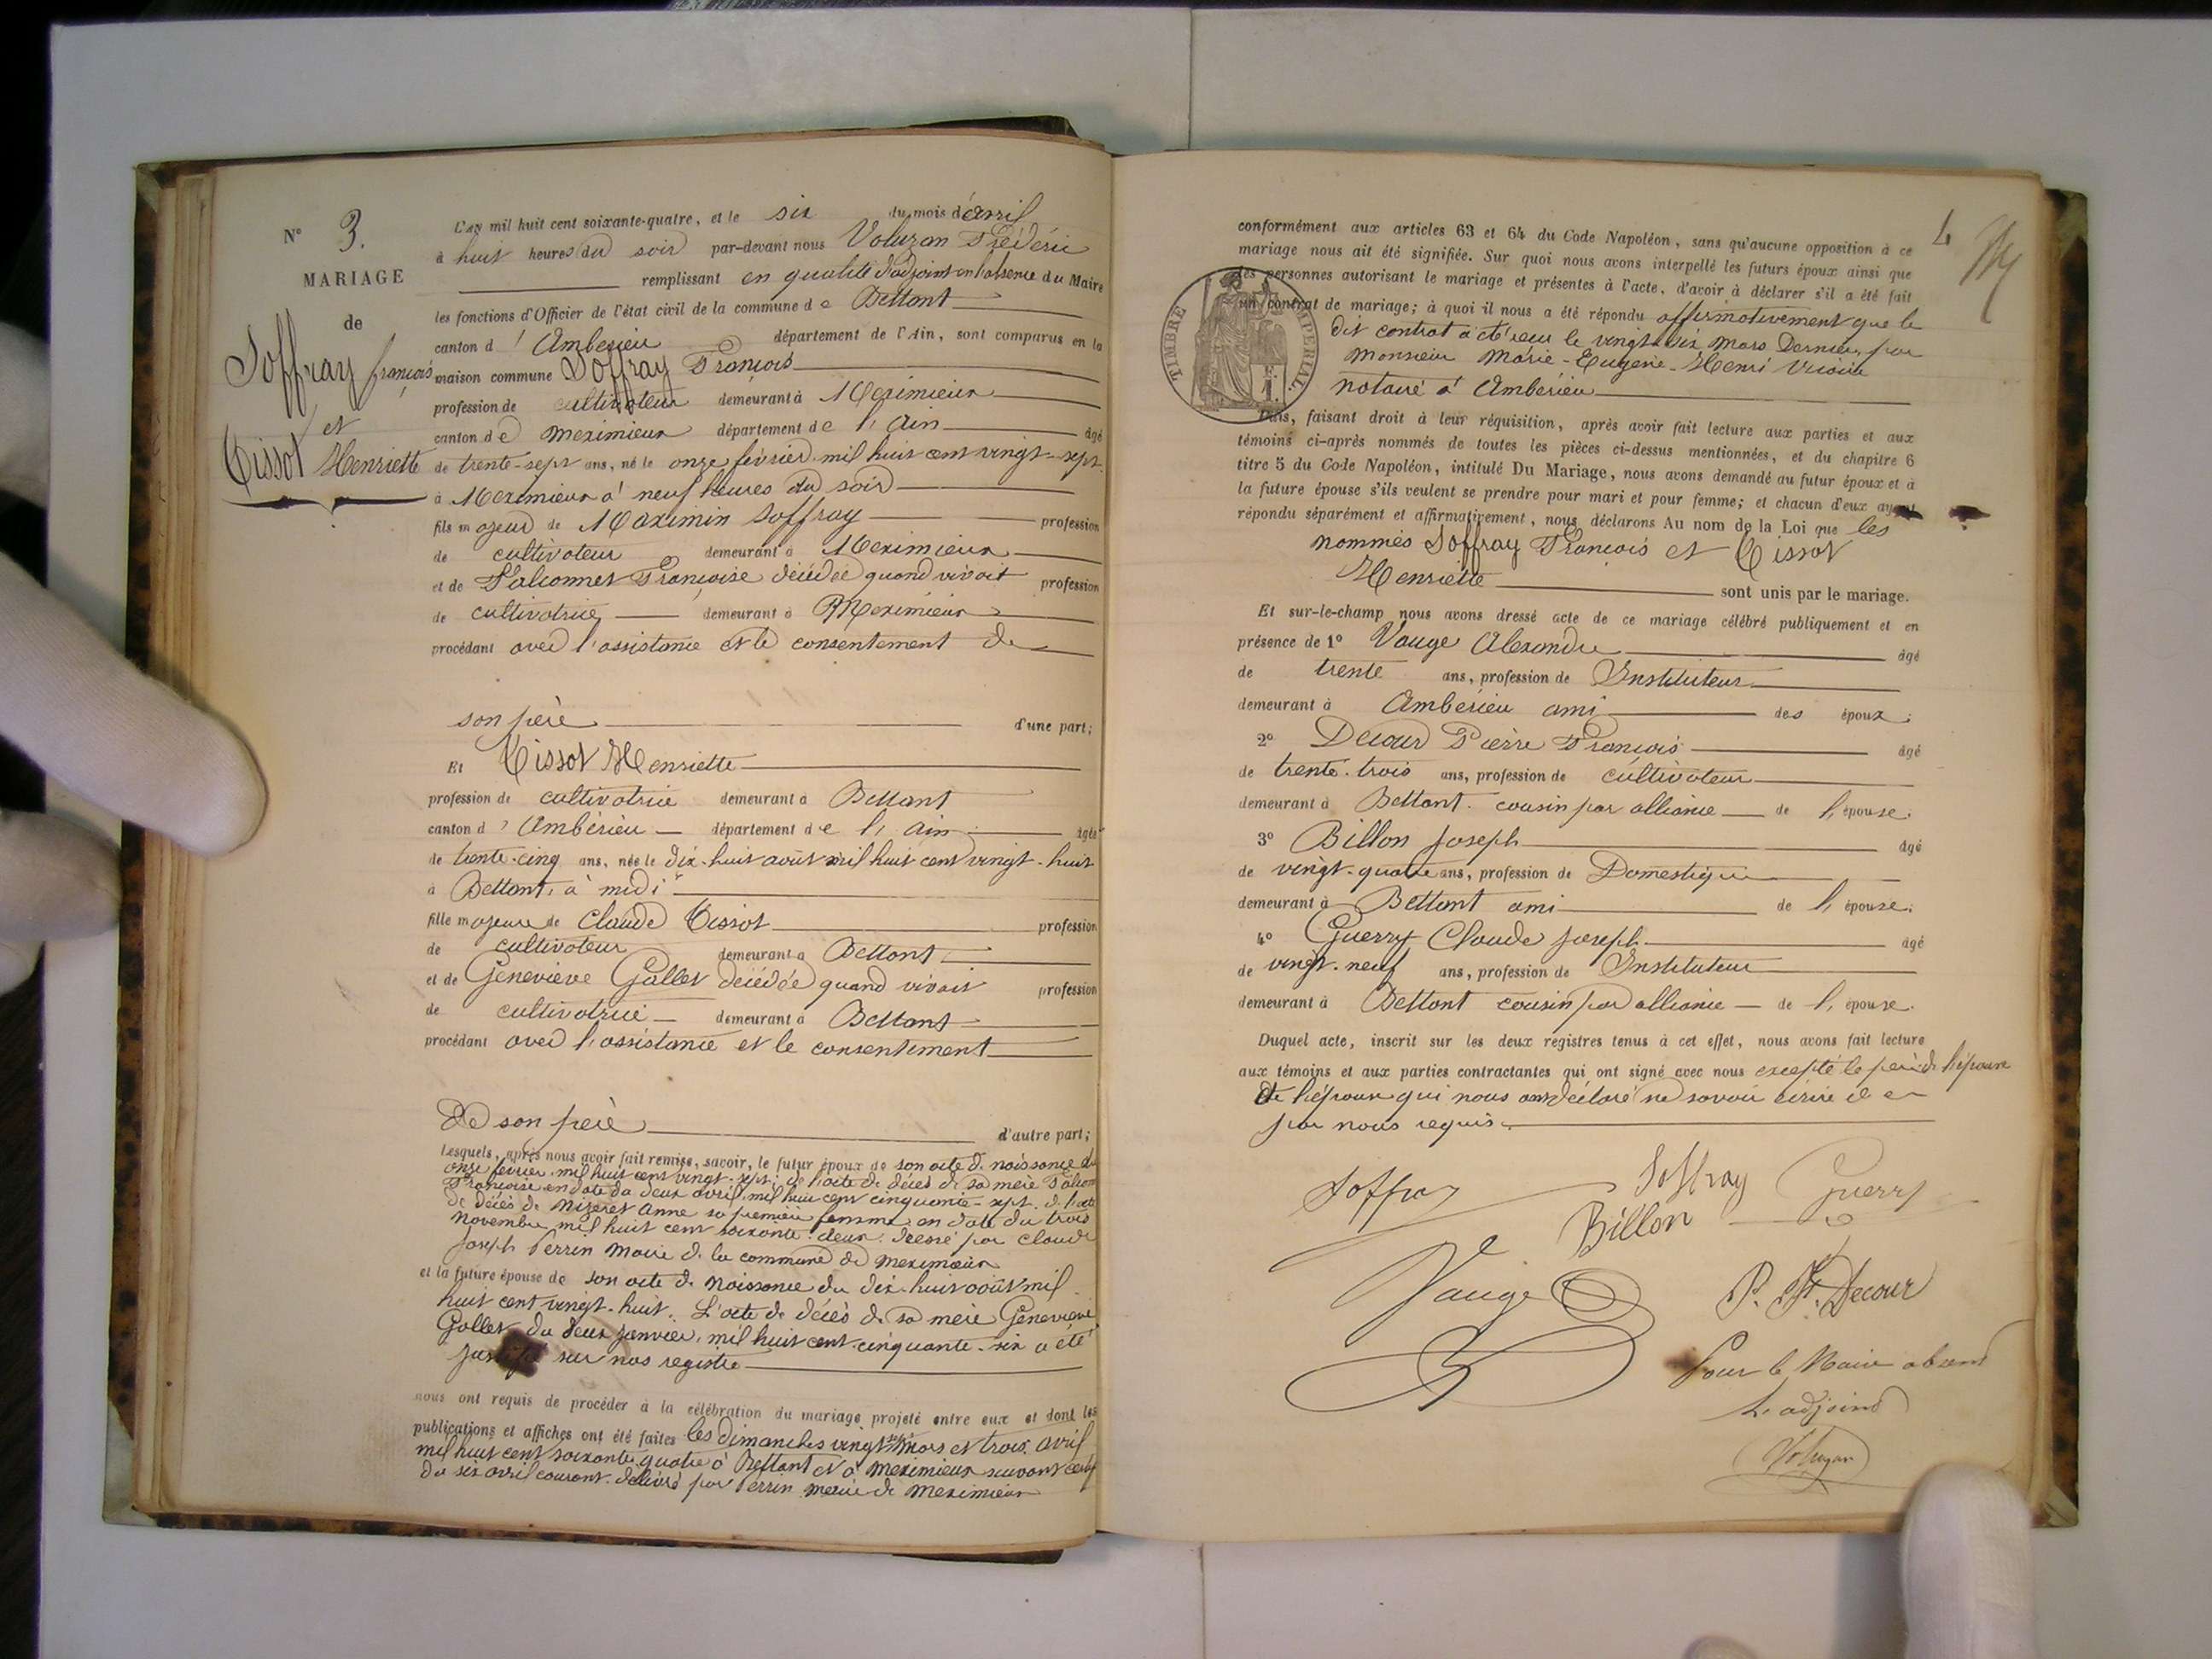 N° 3.
MARIAGE
de
Soffray françois
et
Tissot Henriette
L'an mil huit cent soixante-quatre, et le six du mois d'avril
à huit heures du soir par-devant nous Voluzan Frédéric
remplissant en qualité d'adjoint en l'absence du Maire
les fonctions d'Officier de l'état civil de la commune de Bettant
canton d'Ambérieu département de l'Ain, sont comparus en la
maison commune Soffray François
profession de cultivateur demeurant à Meximieux
canton de Meximieux département de l'Ain âgé
de trente-sept ans, né le onze février mil huit cent vingt-sept
à Meximieux à neuf heures du soir
fils majeur de Maximin Soffray profession
de cultivateur demeurant à Meximieux
et de Falconnet Françoise décédée quand vivait profession
de cultivatrice demeurant à Meximieux
procédant avec l'assistance et le consentement de
son père d'une part;
Et Tissot Henriette
profession de cultivatrice demeurant à Bettant
canton d'Ambérieu département de l'Ain âgée
de trente-cinq ans, née le dix-huit août mil huit cent vingt-huit
à Bettant, à midi
fille majeure de Claude Tissot profession
de cultivateur demeurant à Bettant
et de Geneviève Gallet décédée quand vivait profession
de cultivatrice demeurant à Bettant
procédant avec l'assistance et le consentement
de son père d'autre part;
Lesquels, après nous avoir fait remise, savoir, le futur époux de son acte de naissance du
onze février mil huit cent vingt-sept; de l'acte de décès de sa mère
Françoise en date du deux avril mil huit cent cinquante-sept. de l'acte
de décès de Mizeret Anne sa première femme en date du trois
novembre mil huit cent soixante deux. dressé par Claude
Joseph Perrin Maire de la commune de Meximieux
et la future épouse de son acte de naissance du dix-huit août mil
huit cent vingt-huit. L'acte de décès de sa mère Geneviève
Gallet du deux janvier mil huit cent cinquante-six a été
sur nos registre
nous ont requis de procéder à la célébration du mariage projeté entre eux et dont les
publications et affiches ont été faites les dimanches vingt sept mars et trois avril
mil huit cent soixante quatre à Bettant et à Meximieux suivant certif
du six avril courant. délivré par Perrin maire de Meximieux
4
TIMBRE IMPERIAL
conformément aux articles 63 et 64 du Code Napoléon, sans qu'aucune opposition à ce
mariage nous ait été signifiée. Sur quoi nous avons interpellé les futurs époux ainsi que
les personnes autorisant le mariage et présentes à l'acte, d'avoir à déclarer s'il a été fait
un contrat de mariage; à quoi il nous a été répondu affirmativement que le
dit contrat a été reçu le vingt-six mars dernier, par
Monsieur Marie-Eugène-Henri
notaire à Ambérieu
Puis, faisant droit à leur réquisition, après avoir fait lecture aux parties et aux
témoins ci-après nommés de toutes les pièces ci-dessus mentionnées, et du chapitre 6
titre 5 du Code Napoléon, intitulé Du Mariage, nous avons demandé au futur époux et à
la future épouse s'ils veulent se prendre pour mari et pour femme; et chacun d'eux ayant
répondu séparément et affirmativement, nous déclarons Au nom de la Loi que les
nommés Soffray François et Tissot
Henriette sont unis par le mariage.
Et sur-le-champ nous avons dressé acte de ce mariage célébré publiquement et en
présence de 1° Vauge Alexandre âgé
de trente ans, profession de Instituteur
demeurant à Ambérieu ami des époux;
2° Decour Pierre François âgé
de trente-trois ans, profession de cultivateur
demeurant à Bettant cousin par alliance de l'épouse.
3° Billon Joseph âgé
de vingt-quatre ans, profession de Domestique
demeurant à Bettant ami de l'épouse;
4° Guerry Claude Joseph âgé
de vingt-neuf ans, profession de Instituteur
demeurant à Bettant cousin par alliance de l'épouse.
Duquel acte, inscrit sur les deux registres tenus à cet effet, nous avons fait lecture
aux témoins et aux parties contractantes qui ont signé avec nous excepté le père de l'épouse
et l'épouse qui nous ont déclaré ne savoir écrire
par nous requis
Soffray Soffray Guerry
Billon
Vauge P. F. Decour
Pour le Maire absent
L'adjoint
Voluzan